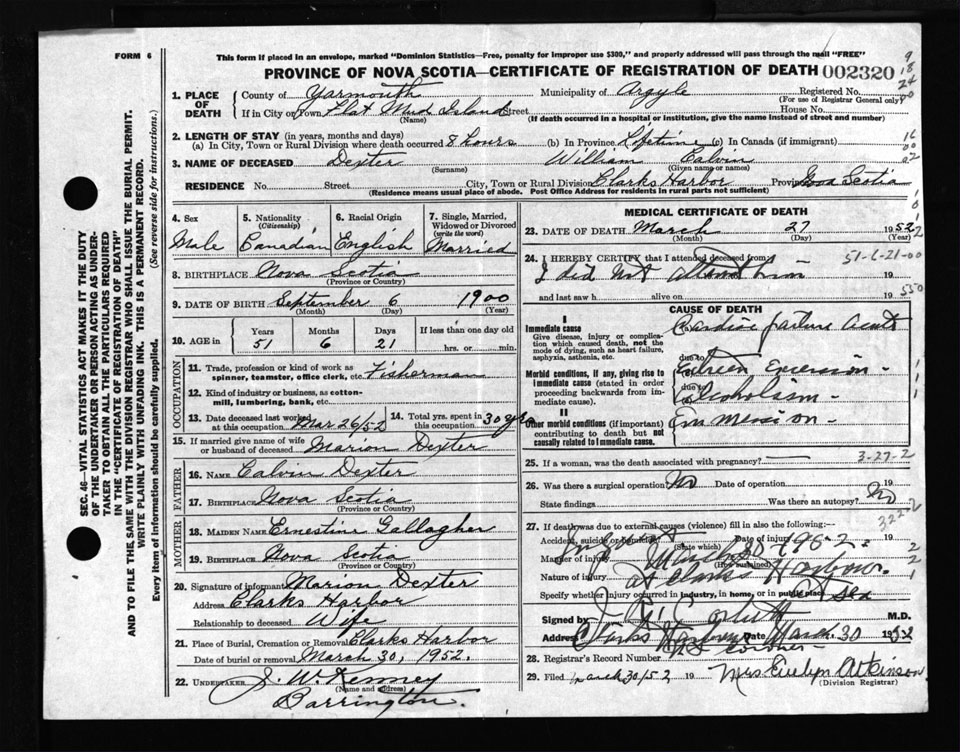 FORM 6
This form if placed in an envelope, marked "Dominion Statistics—Free, penalty for improper use $300," and properly addressed will pass through the mail "FREE"
PROVINCE OF NOVA SCOTIA—CERTIFICATE OF REGISTRATION OF DEATH 002320
1. PLACE OF DEATH
County of Yarmouth Municipality of Argyle Registered No.
(For use of Registrar General only)
If in City or Town Flat Mud Island Street House No.
(Name) (If death occurred in a hospital or institution, give the name instead of street and number)
2. LENGTH OF STAY (in years, months and days)
(a) In City, Town or Rural Division where death occurred 8 hours (b) In Province Lifetime (c) In Canada (if immigrant)
3. NAME OF DECEASED Dexter William Calvin
(Surname) (Given name or names)
RESIDENCE No. Street City, Town or Rural Division Clarks Harbor Province Nova Scotia
(Residence means usual place of abode. Post Office Address for residents in rural parts not sufficient)
4. Sex Male
5. Nationality (Citizenship) Canadian
6. Racial Origin English
7. Single, Married, Widowed or Divorced (write the word) Married
8. BIRTHPLACE Nova Scotia
(Province or Country)
9. DATE OF BIRTH September 6 1900
(Month) (Day) (Year)
10. AGE in Years Months Days If less than one day old
51 6 21 hrs. or min.
OCCUPATION
11. Trade, profession or kind of work as spinner, teamster, office clerk, etc. Fisherman
12. Kind of industry or business, as cotton-mill, lumbering, bank, etc.
13. Date deceased last worked at this occupation Mar 26/52
14. Total yrs. spent in this occupation 30 yrs
15. If married give name of wife or husband of deceased Marion Dexter
FATHER
16. NAME Calvin Dexter
17. BIRTHPLACE Nova Scotia
(Province or Country)
MOTHER
18. MAIDEN NAME Ernestine Gallagher
19. BIRTHPLACE Nova Scotia
(Province or Country)
20. Signature of informant Marion Dexter
Address Clarks Harbor
Relationship to deceased Wife
21. Place of Burial, Cremation or Removal Clarks Harbor
Date of burial or removal March 30, 1952.
22. UNDERTAKER J. W. Kenney
(Name and address)
Barrington.
MEDICAL CERTIFICATE OF DEATH
23. DATE OF DEATH March 27 1952
(Month) (Day) (Year)
24. I HEREBY CERTIFY that I attended deceased from: 51-6-21-00
I did not attend him 19
and last saw h alive on 19
CAUSE OF DEATH
I
Immediate cause
Give disease, injury or complication which caused death, not the mode of dying, such as heart failure, asphyxia, asthenia, etc.
Cardiac failure Acute
due to
Morbid conditions, if any, giving rise to immediate cause (stated in order proceeding backwards from immediate cause).
due to
Alcoholism -
II
Other morbid conditions (if important) contributing to death but not causally related to immediate cause.
25. If a woman, was the death associated with pregnancy? 3-27-2
26. Was there a surgical operation? No Date of operation 19
State findings Was there an autopsy? No
27. If death was due to external causes (violence) fill in also the following:—
Accident, suicide or homicide? Date of injury 19
(State which)
Manner of injury
(How sustained)
Nature of injury at Clarks Harbour.
Specify whether injury occurred in industry, in home, or in public place
Signed by M.D.
Address Clarks Harbour Date March 30 1952
28. Registrar's Record Number
29. Filed March 30/52 19 Mrs. Evelyn Atkinson
(Division Registrar)
SEC. 46—VITAL STATISTICS ACT MAKES IT THE DUTY OF THE UNDERTAKER OR PERSON ACTING AS UNDERTAKER TO OBTAIN ALL THE PARTICULARS REQUIRED IN THE "CERTIFICATE OF REGISTRATION OF DEATH" AND TO FILE THE SAME WITH THE DIVISION REGISTRAR WHO SHALL ISSUE THE BURIAL PERMIT.
WRITE PLAINLY WITH UNFADING INK. THIS IS A PERMANENT RECORD.
Every item of information should be carefully supplied. (See reverse side for instructions.)